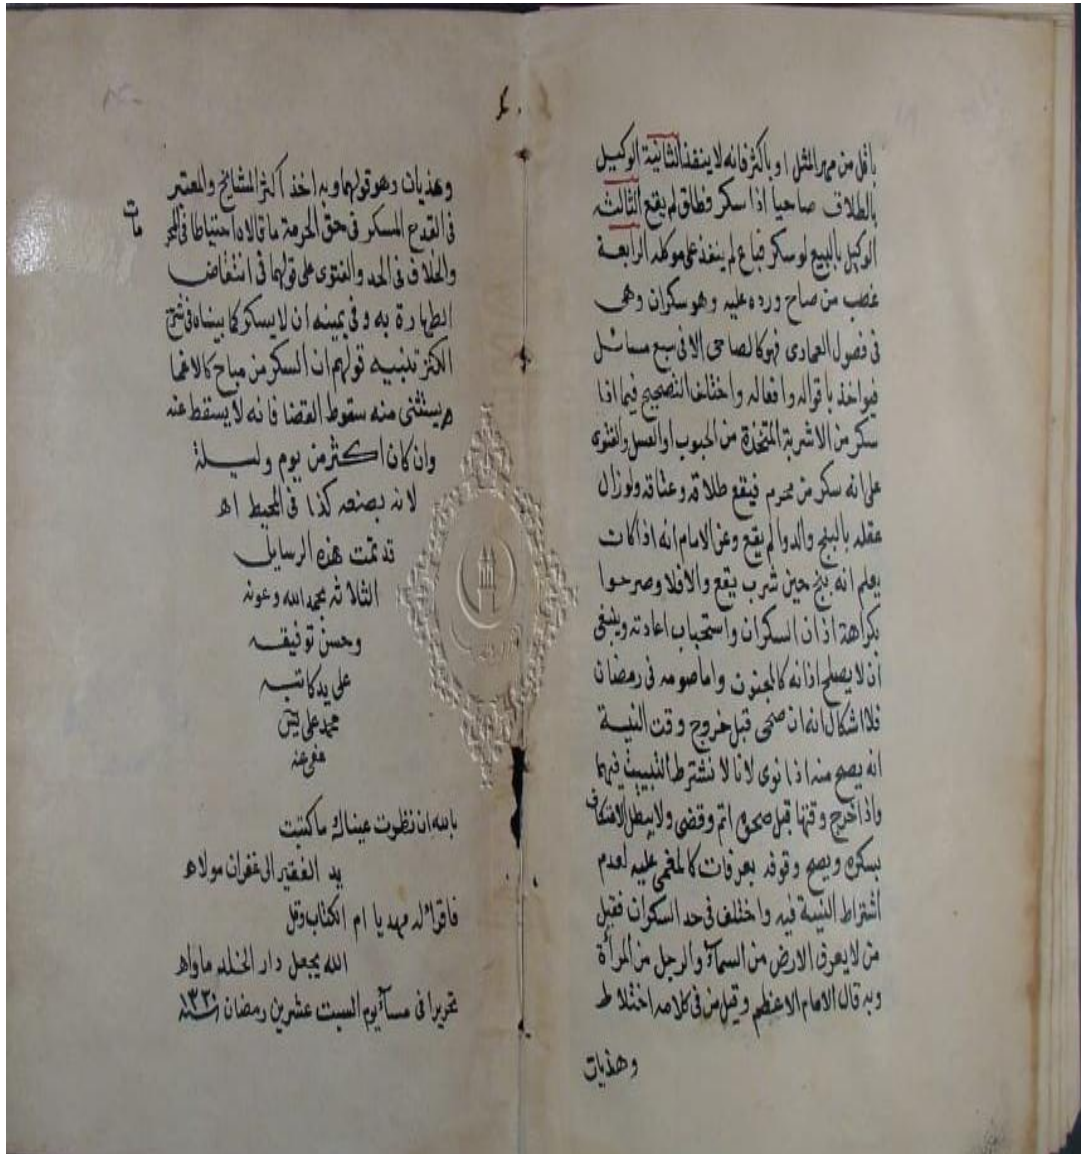 باقل من مهر المثل او باكثر فانه لا ينفذ الثانية الوكيل
بالطلاق صاحيا اذا سكر فطلق لم يقع الثالثة
الوكيل بالبيع لو سكر فباع لم ينفذ على موكله الرابعة
غصب من صاح ورده عليه وهو سكران وهى
فى فصول العمادى فهو كالصاحى الا فى سبع مسائل
فيواخذ باقواله وافعاله واختلف التصحيح فيما اذا
سكر من الاشربة المتخذة من الحبوب او العسل والفتوى
على انه سكر من محرم فيقع طلاقه وعتاقه ولو زال
عقله بالبنج والدوا لم يقع وعن الامام انه اذا كان
يعلم انه بنج حين شرب يقع والا فلا وصرحوا
بكراهة اذان السكران واستحباب اعادته وينبغى
ان لا يصلح اذانه كالمجنون واما صومه فى رمضان
فلا اشكال انه ان صحى قبل خروج وقت النية
انه يصح منه اذا نوى لانا لا نشترط التبييت فيها
واذا خرج وقتها قبل صحوه اثم وقضى ولا يبطل الاعتكاف
بسكره ويصح وقوفه بعرفات كالمغمى عليه لعدم
اشتراط النية فيه واختلف فى حد السكران فقيل
من لا يعرف الارض من السمآء والرجل من المرأة
وبه قال الامام الاعظم وقيل من فى كلامه اختلاط
وهذيان
وهذيان وهو قولهما وبه اخذ اكثر المشايخ والمعتبر
فى القدح المسكر فى حق الحرمة ما قالاه احتياطا فى الحرمات
والخلاف فى الحد والفتوى على قولهما فى انتقاض
الطهارة به وفى يمينه ان لا يسكر كما بيناه فى شرح
الكنز تنبيه قولهم ان السكر من مباح كالاغما
يستثنى منه سقوط القضا فانه لا يسقط عنه
وان كان اكثر من يوم وليلة
لانه بصنعه كذا فى المحيط اه
قد تمت هذه الرسايل
الثلاثه بحمد الله وعونه
وحسن توفيقه
على يد كاتبه
محمد على
عفى عنه
بالله ان نظرت عيناك ما كتبت
يد الفقير الى غفران مولاه
فاقرا له مهديا ام الكتاب وقل
الله يجعل دار الخلد ماواه
تحريرا فى مسآء يوم السبت عشرين رمضان سنة ١٣٢٠